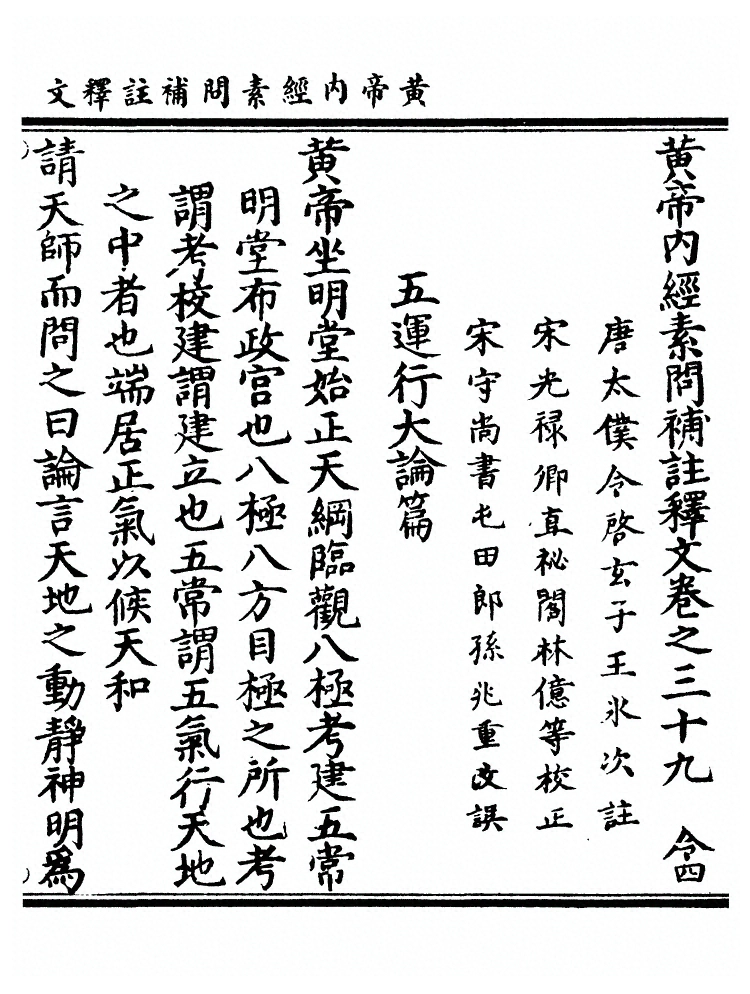 黄帝内經素問補註釋文
黄帝内經素問補註釋文卷之三十九 令四
唐太僕令啓玄子王氷次註
宋光禄卿直祕閣林億等校正
宋守尚書屯田郎孫兆重改誤
五運行大論篇
黄帝坐明堂始正天綱臨觀八極考建五常
明堂布政宫也八極八方目極之所也考
謂考校建謂建立也五常謂五氣行天地
之中者也端居正氣以候天和
請天師而問之曰論言天地之動靜神明爲